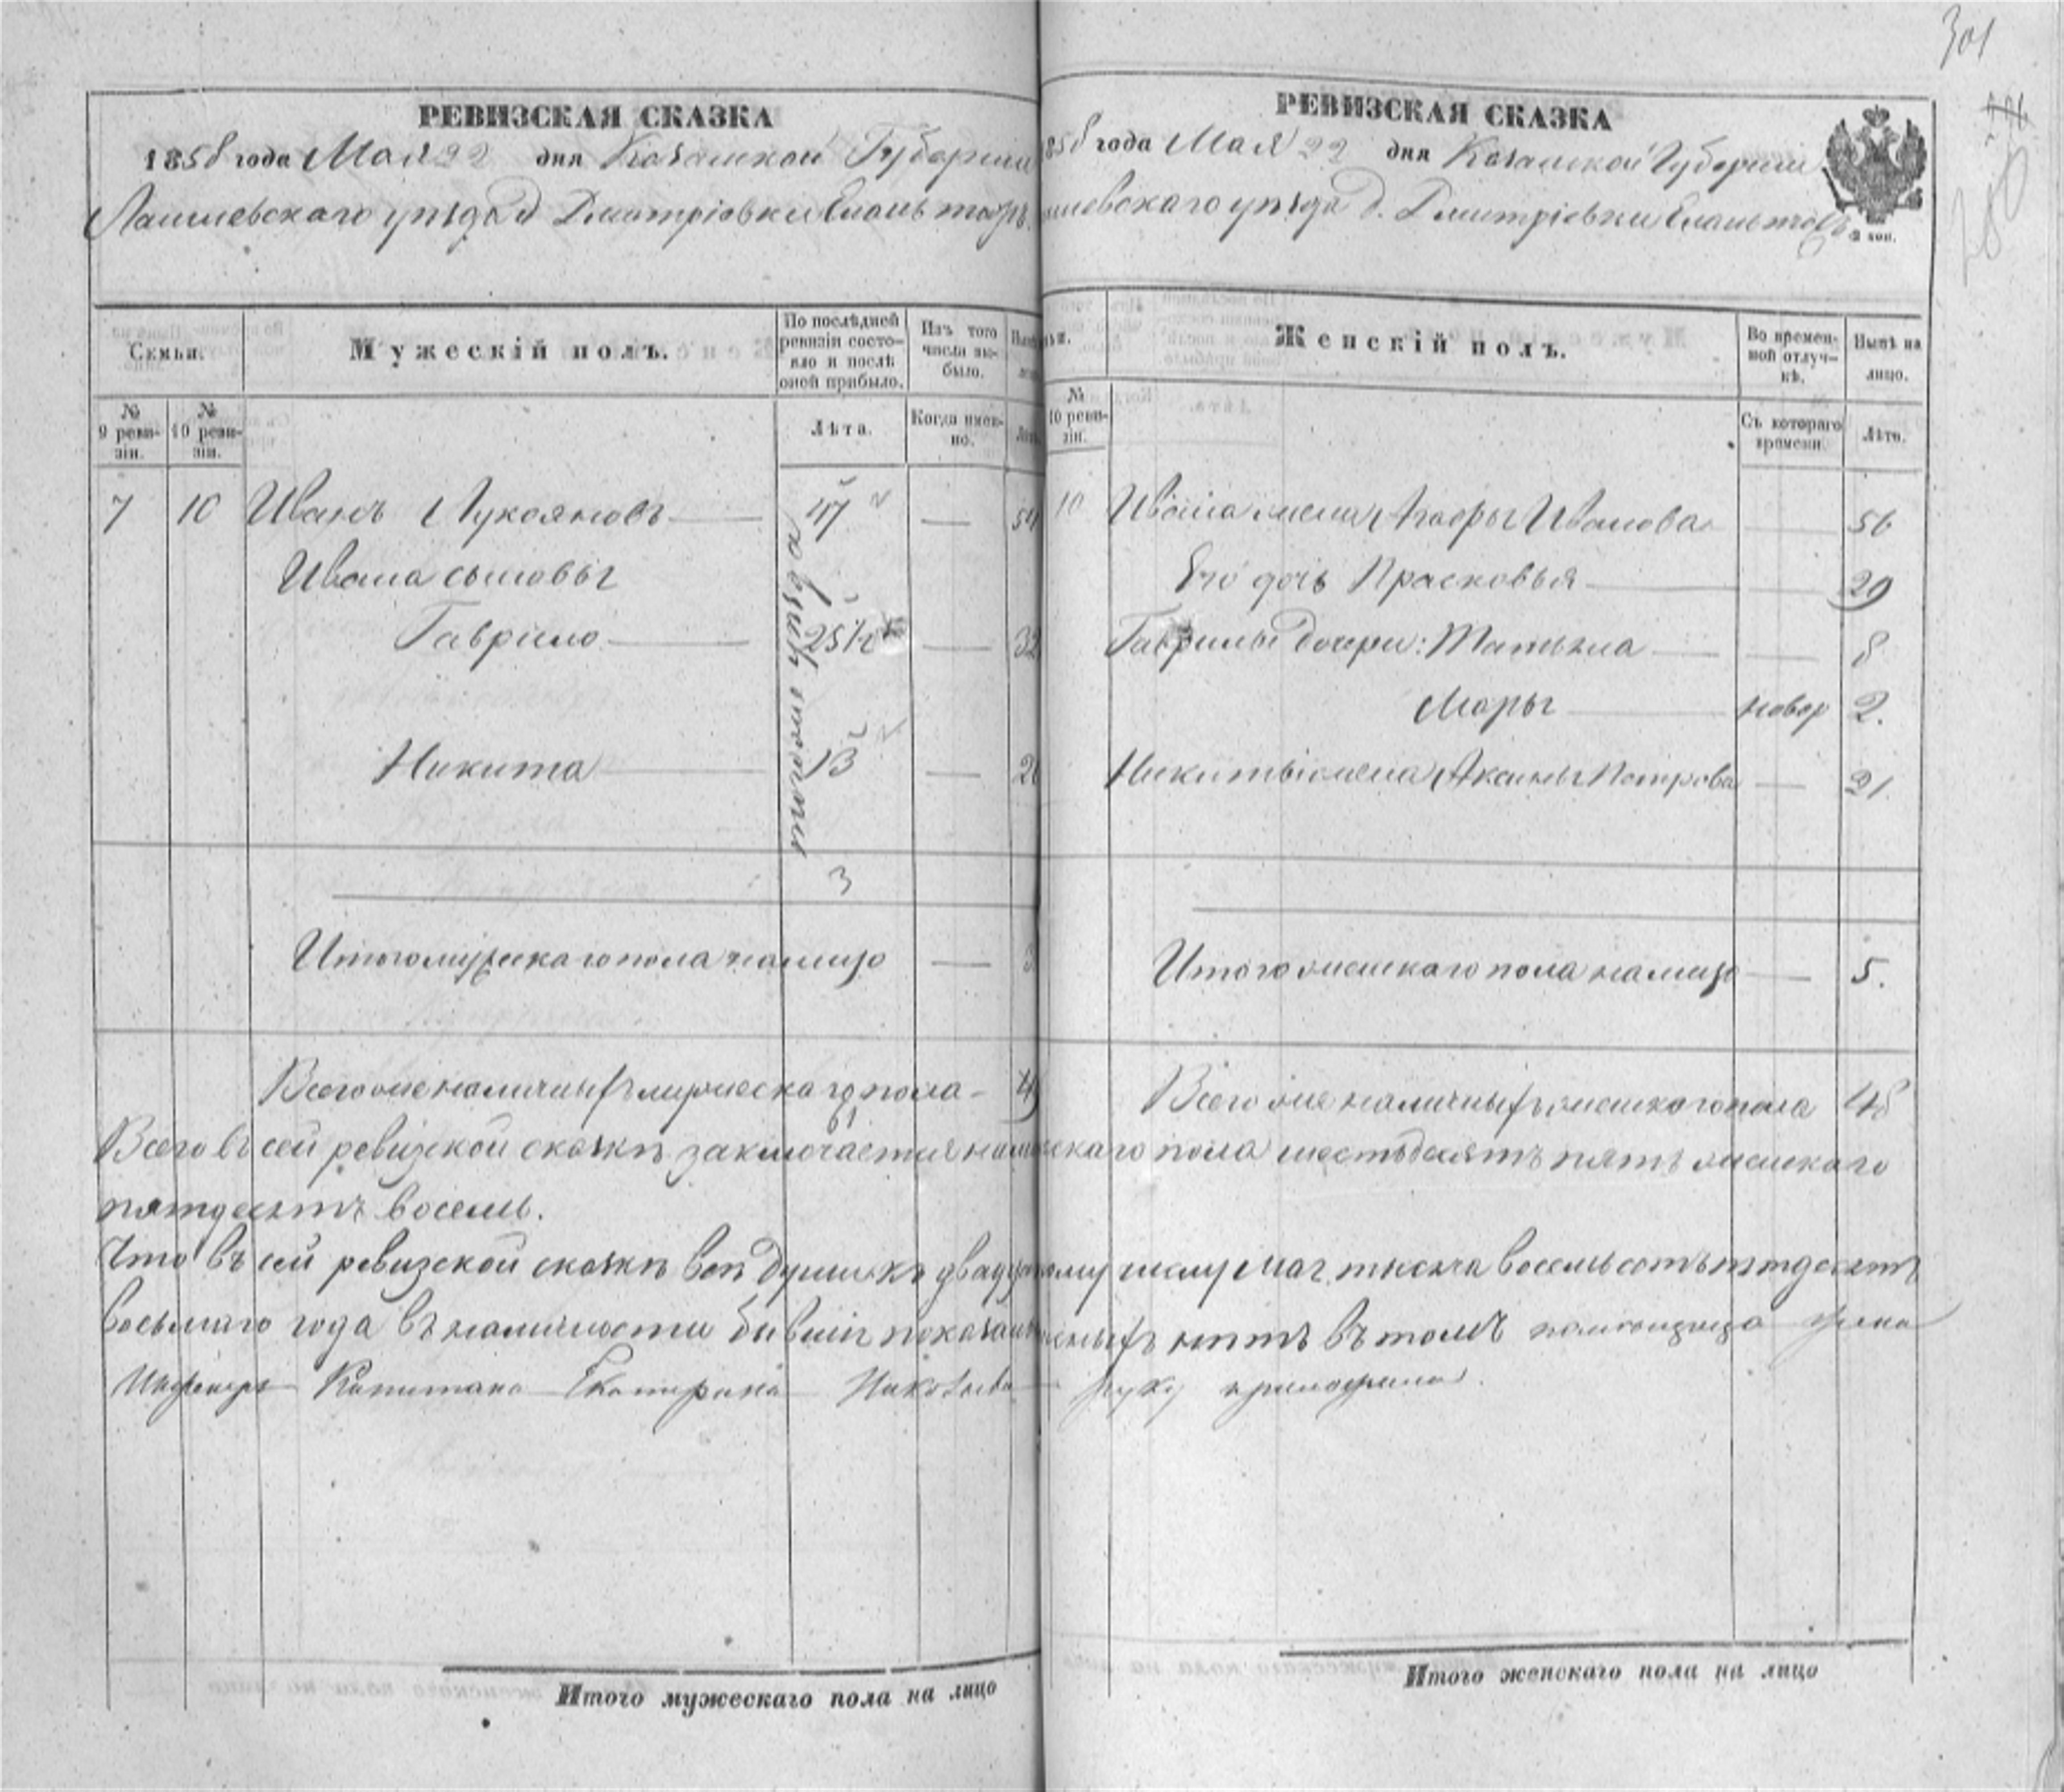 301
РЕВИЗСКАЯ СКАЗКА
1858 года Мая 22 дня Казанской Губернии
Лаишевскаго уѣзда д Дмитріевки Елань тожъ
Семьи.
Мужескій полъ.
По послѣдней ревизіи состояло и послѣ оной прибыло.
Изъ того числа выбыло.
№ 9 ревизіи.
№ 10 ревизіи.
Лѣта.
Когда именно.
7 10 Иванъ Лукояновъ 47 — 54
Ивана сыновья
Гаврило 25 1/2 — 32
Никита 13 — 20
тогоже уѣзда
3
Итого мужескаго пола на лицо — 3
Всего же наличныхъ мужескаго пола -
61
РЕВИЗСКАЯ СКАЗКА
1858 года Мая 22 дня Казанской Губерніи
шевскаго уѣзда д. Дмитріевки Елань тожъ
2 коп.
Женскій полъ.
Во временной отлучкѣ.
Нынѣ на лицо.
№ 10 ревизіи.
Съ котораго времени.
Лѣта.
10 Ивана жена Агафья Иванова — 56
Его дочь Прасковья — 29
Гаврилы дочери: Татьяна — 8
Марья новор 2.
Никиты жена Аксинья Петрова — 21.
Итого женскаго пола на лицо — 5.
Всего же наличныхъ женскаго пола 48
Всего въ сей ревизской сказкѣ заключается мужескаго пола шестьдесятъ пять женскаго
пятдесятъ восемь.
Что въ сей ревизской сказкѣ всѣ души къ двадцатому числу Мая тысяча восемьсотъ пятдесятъ
восьмаго года въ наличности бывшія показаны нѣтъ въ томъ помѣщица жена
Инженеръ Капитана Екатерина руку приложила.
Итого мужескаго пола на лицо
Итого женскаго пола на лицо